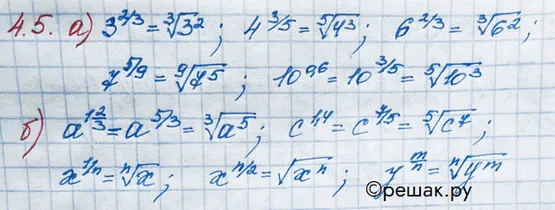 4.5. а) 3^{2/3} = ∛3²; 4^{3/5} = ⁵√4³; 6^{2/3} = ∛6²;
7^{5/9} = ⁹√7⁵; 10^{0,6} = 10^{3/5} = ⁵√10³
б) a^{1 2/3} = a^{5/3} = ∛a⁵; c^{1,4} = c^{7/5} = ⁵√c⁷;
x^{1/n} = ⁿ√x; x^{n/2} = √xⁿ; y^{m/n} = ⁿ√y^m
©решак.ру